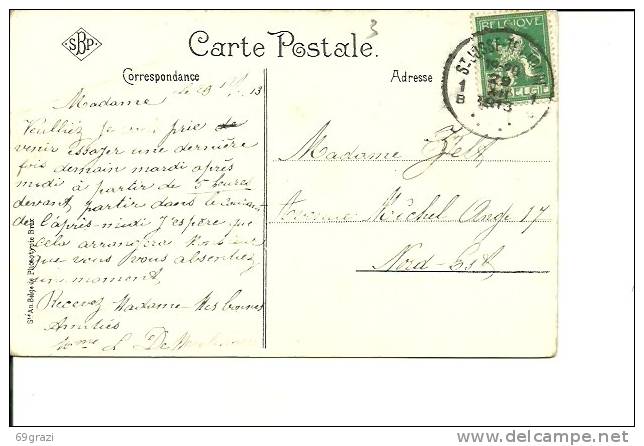 SBP
3
Carte Postale.
Correspondance
Adresse
BELGIQUE
BELGIË
ST JOSSE-TEN
29
1913
B 1
le 29 13
Madame
Veuillez je prie de
venir essayer une dernière
fois demain mardi après
midi à partir de 5 heures
devant partir dans le courant
de l'après-midi J'espère que
cela arrangera
que vous vous absentiez
un moment,
Recevez Madame Mes bonnes
Amitiés
Mme L De
Madame Zelt,
Avenue Michel Ange 17
Nord-Est,
Sté An. Belge de Phototypie Brux
69grazi
delcampe.net